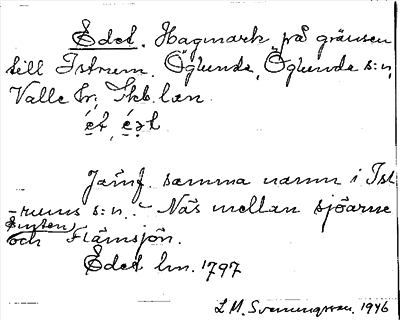 Edet. Hagmark på gränsen
till Istrum. Öglunda, Öglunda s:n,
Valle hr; Skb. län.
ét, éət
Jämf. samma namn i Ist-
rums s:n. - Näs mellan sjöarne
Emten
och Flämsjön.
Edet lm. 1797
L M. Svenungsson. 1946